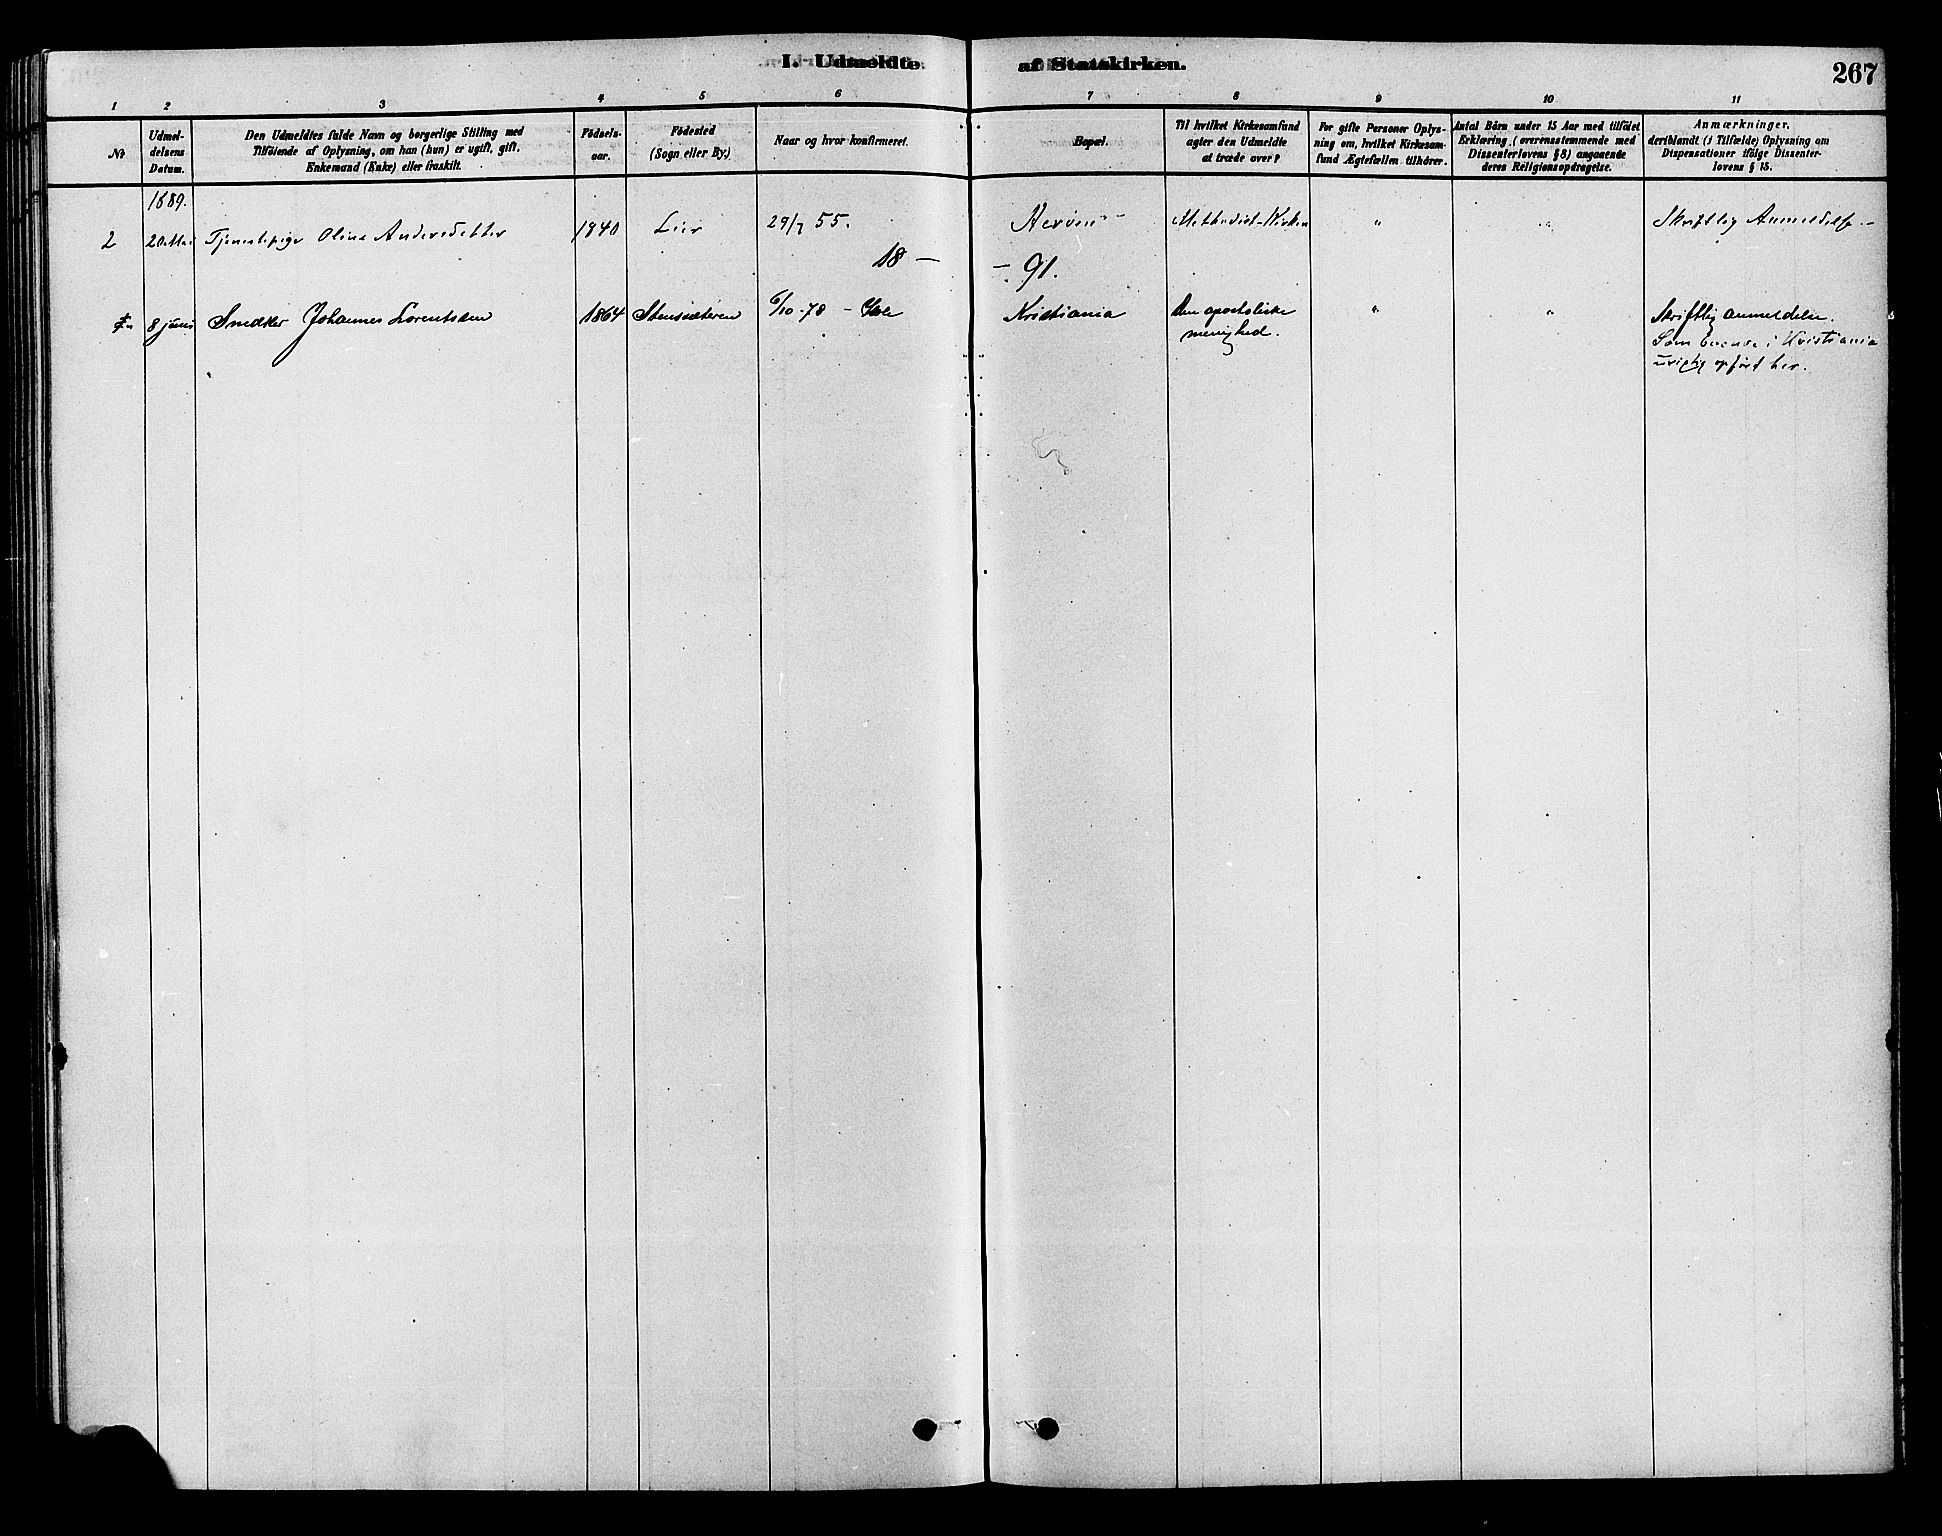 I. Udmeldte af Statskirken.
267
1 2 3 4 5 6 7 8 9 10 11
No
Udmel-
delsens
Datum.
Den Udmeldtes fulde Navn og borgerlige Stilling med
Tilföiende af Oplysning, om han (hun) er ugift, gift,
Enkemand (Enke) eller fraskilt.
Födsels-
aar.
Födested
(Sogn eller By.)
Naar og hvor konfirmeret.
Bopæl.
Til hvilket Kirkesamfund
agter den Udmeldte
at træde over?
For gifte Personer Oplys-
ning om, hvilket Kirkesam-
fund Ægtefællen tilhörer.
Antal Börn under 15 Aar med tilföiet
Erklæring (overensstemmende med
Dissenterlovens § 8) angaaende
deres Religionsopdragelse.
Anmærkninger,
deriblandt (i Tilfælde) Oplysning om
Dispensationer ifölge Dissenter-
lovens § 15.
1889.
2 20 Mai Tjenestepige Oline Andersdatter 1840 Lier 29/7 55. Methodist-Kirken " " Skriftlig Anmeldelse -
18 — — 91.
8 juni Snedker Johannes Lorentsen 1864 Stensæteren 6/10 - 78 - Hole Kristiania Den apostoliske " " Skriftlig anmeldelse.
menighed. Som boende i Kristiania
urigtig opført her.